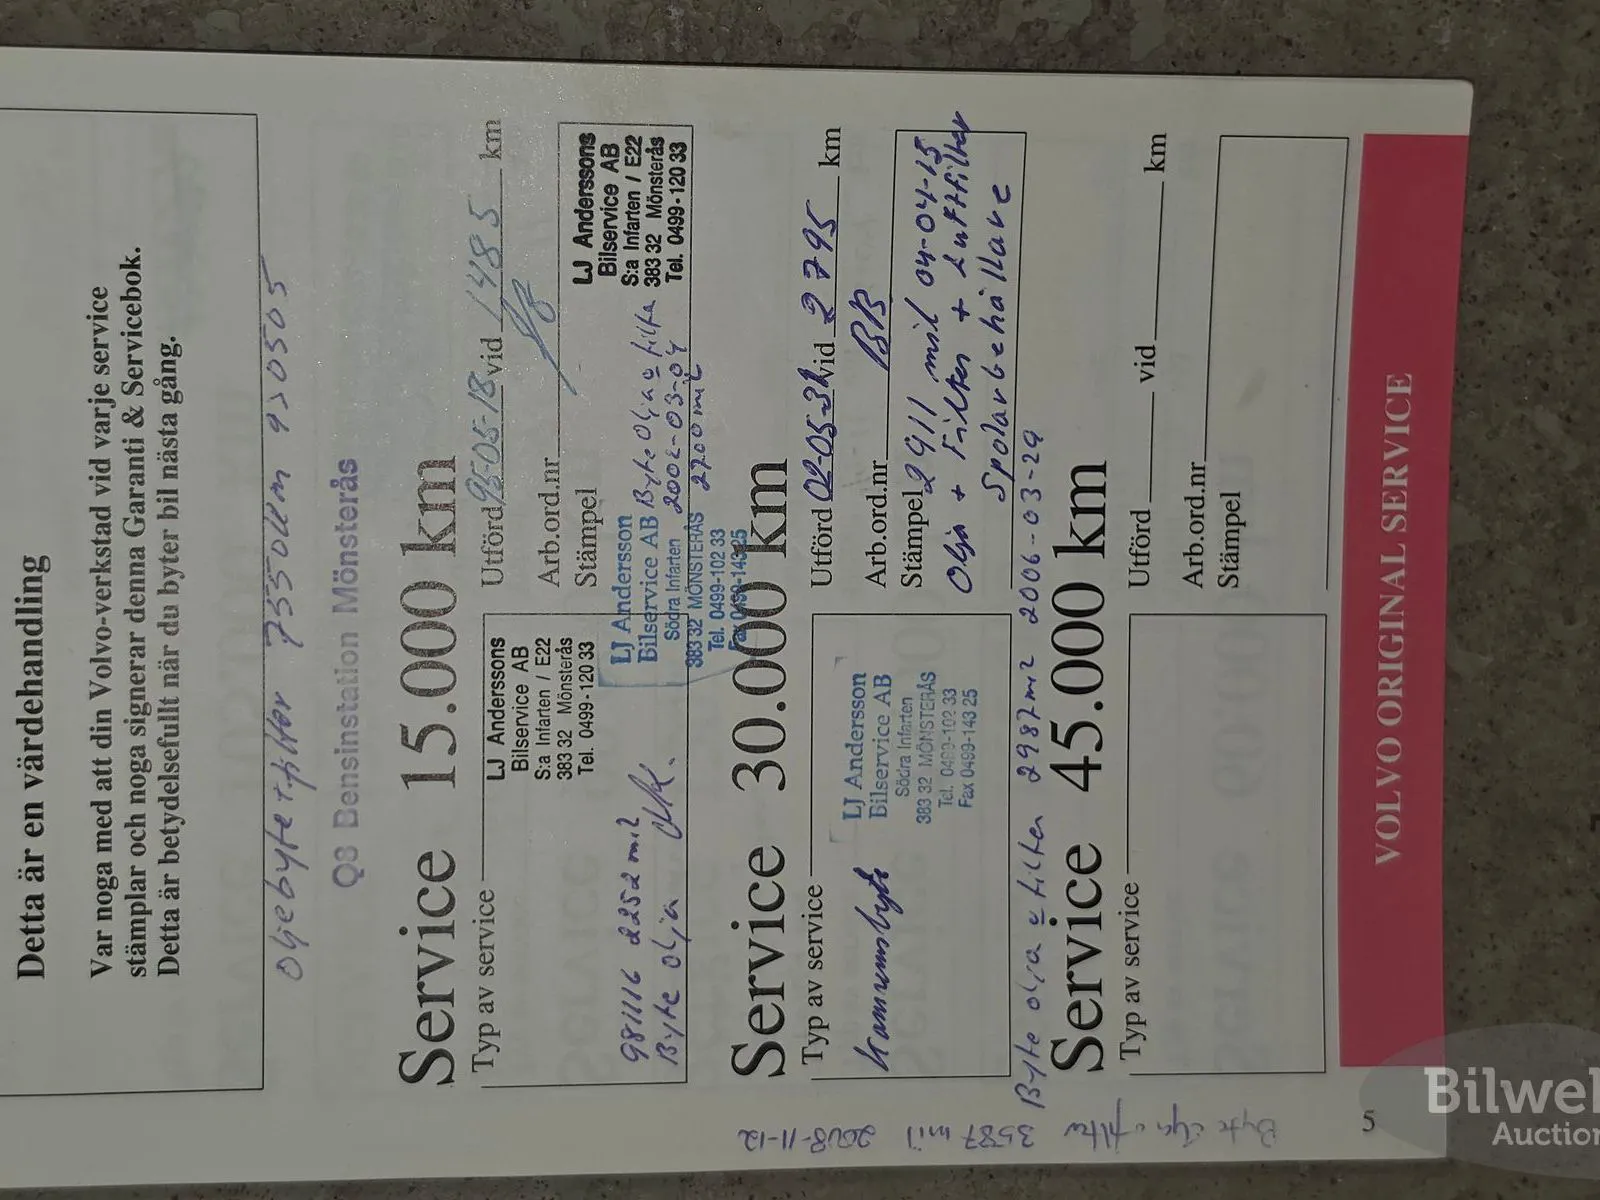 Detta är en värdehandling
Var noga med att din Volvo-verkstad vid varje service
stämplar och noga signerar denna Garanti & Servicebok.
Detta är betydelsefullt när du byter bil nästa gång.
Oljebyte + filter 7350 km 930505
Q8 Bensinstation Mönsterås
Service 15.000 km
Typ av service
LJ Anderssons
Bilservice AB
S:a Infarten / E22
383 32 Mönsterås
Tel. 0499-120 33
981116 2252 mil
Byte olja
Utförd 95-05-18 vid 1485 km
Arb.ord.nr
Stämpel
LJ Anderssons
Bilservice AB
S:a Infarten / E22
383 32 Mönsterås
Tel. 0499-120 33
LJ Andersson
Bilservice AB
Södra Infarten
383 32 MÖNSTERÅS
Tel. 0499-102 33
Fax 0499-143 25
Byte Olja o filter
2002-03-04
2700 mil
Service 30.000 km
Typ av service
Kamremsbyte
LJ Andersson
Bilservice AB
Södra Infarten
383 32 MÖNSTERÅS
Tel. 0499-102 33
Fax 0499-143 25
Utförd 02-05-31 vid 2795 km
Arb.ord.nr BB
Stämpel 2911 mil 04-04-15
Olja + Filter + Luftfilter
Spolarbehållare
Byte olja o filter 2987 mil 2006-03-29
Service 45.000 km
Typ av service
Utförd vid km
Arb.ord.nr
Stämpel
VOLVO ORIGINAL SERVICE
5
Byte olja o filter
3587 mil
11-12
Bilwel
Auction